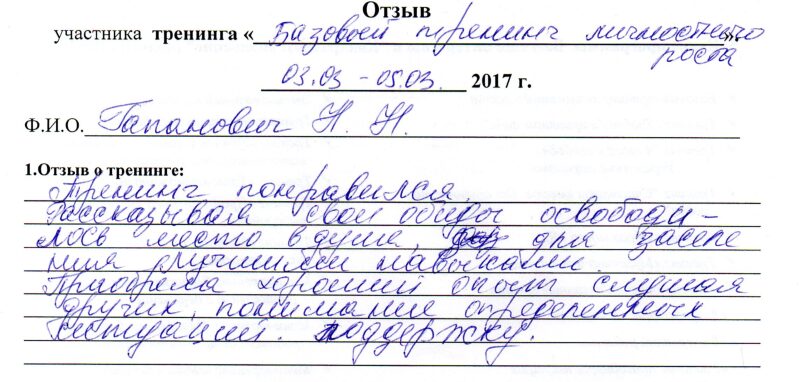 Отзыв
участника тренинга « Базовый тренинг личностного »
роста
03.03 – 05.03. 2017 г.
Ф.И.О. Гапанович Н. Н.
1.Отзыв о тренинге:
Тренинг понравился.
Рассказывая свои обиды освободи-
лось место в душе, для заселе
ния лучшими навыками.
Приобрела хороший опыт слушая
других, понимание определенных
ситуаций. Поддержку.